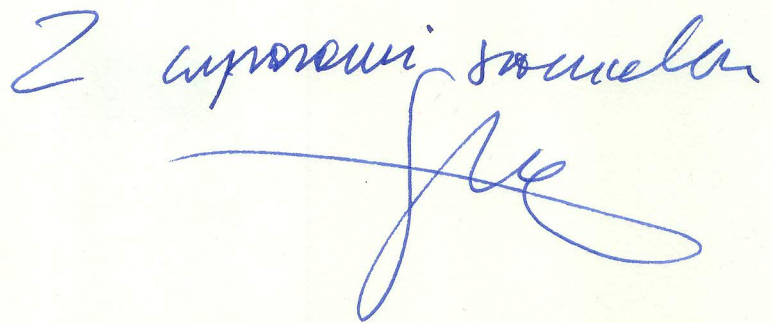 Z wyrazami szacunku